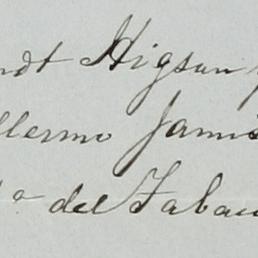 ndt Higson y
llermo Jamis
to del Tabac